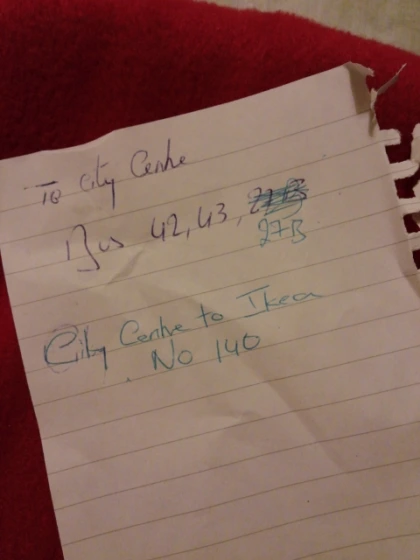 To City Centre
Bus 42, 43,
27B
City Centre to Ikea
No 140